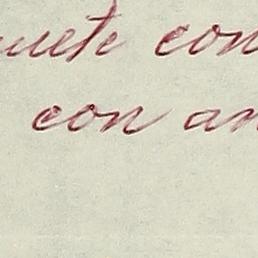 uete con
con an